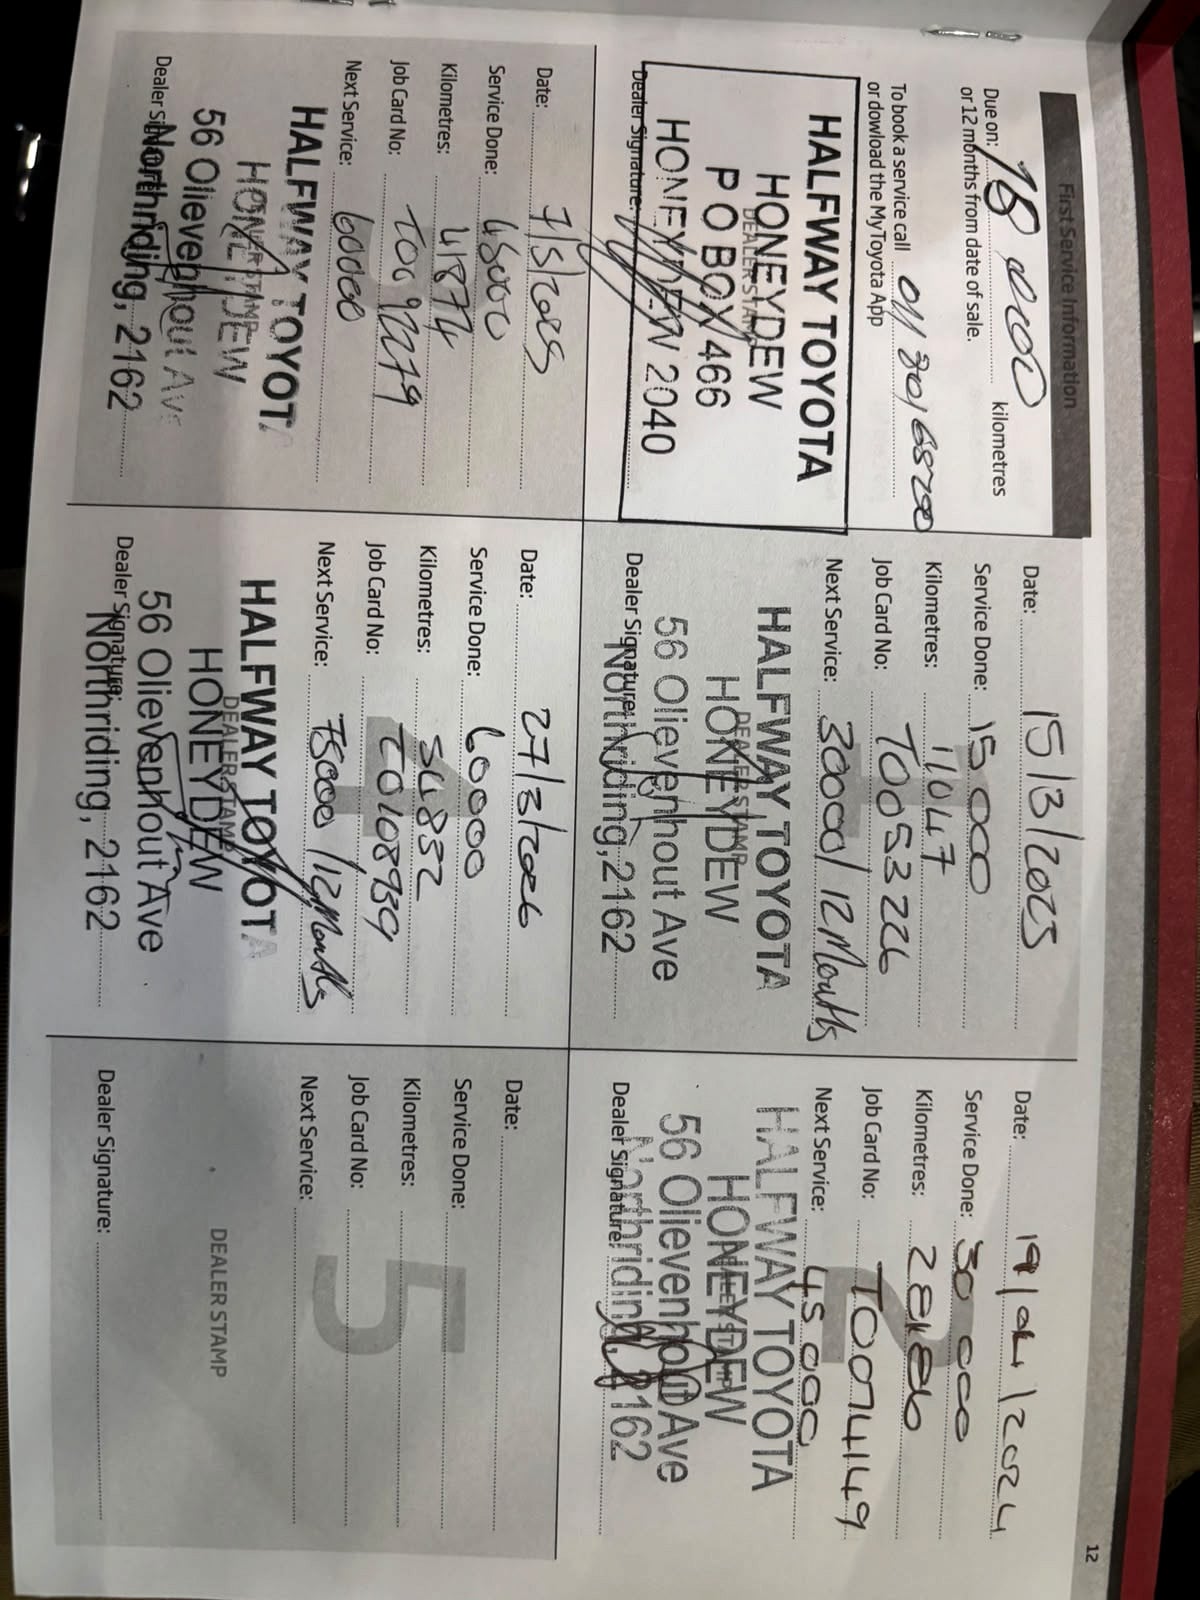 First Service Information
Due on: 15 000 kilometres
or 12 months from date of sale.
To book a service call 011 801 6S200
or dowload the MyToyota App
HALFWAY TOYOTA
HONEYDEW
DEALER STAMP
P O BOX 466
HONEYDEW 2040
Dealer Signature:
Date: 15/3/2023
Service Done: 15 000
Kilometres: 11047
Job Card No: T0053226
Next Service: 30000/12Months
1
HALFWAY TOYOTA
DEALER STAMP
HONEYDEW
56 Olievenhout Ave
Dealer Signature:
Northriding, 2162
12
Date: 19/04/2024
Service Done: 30 000
Kilometres: 28186
Job Card No: T0074149
Next Service: 45 000
2
HALFWAY TOYOTA
HONEYDEW
56 Olievenhout Ave
Dealer Signature:
Northriding, 2162
Date: 7/5/2025
Service Done: 45000
Kilometres: 41874
Job Card No: T0092279
Next Service: 60000
HALFWAY TOYOTA
DEALER STAMP
HONEYDEW
56 Olievenhout Ave
Dealer Signature:
Northriding, 2162
Date: 27/3/2026
Service Done: 60000
Kilometres: 54832
Job Card No: T0108939
Next Service: 75000/12Months
4
HALFWAY TOYOTA
DEALER STAMP
HONEYDEW
56 Olievenhout Ave
Dealer Signature:
Northriding, 2162
Date:
Service Done:
Kilometres:
Job Card No:
Next Service:
5
DEALER STAMP
Dealer Signature: